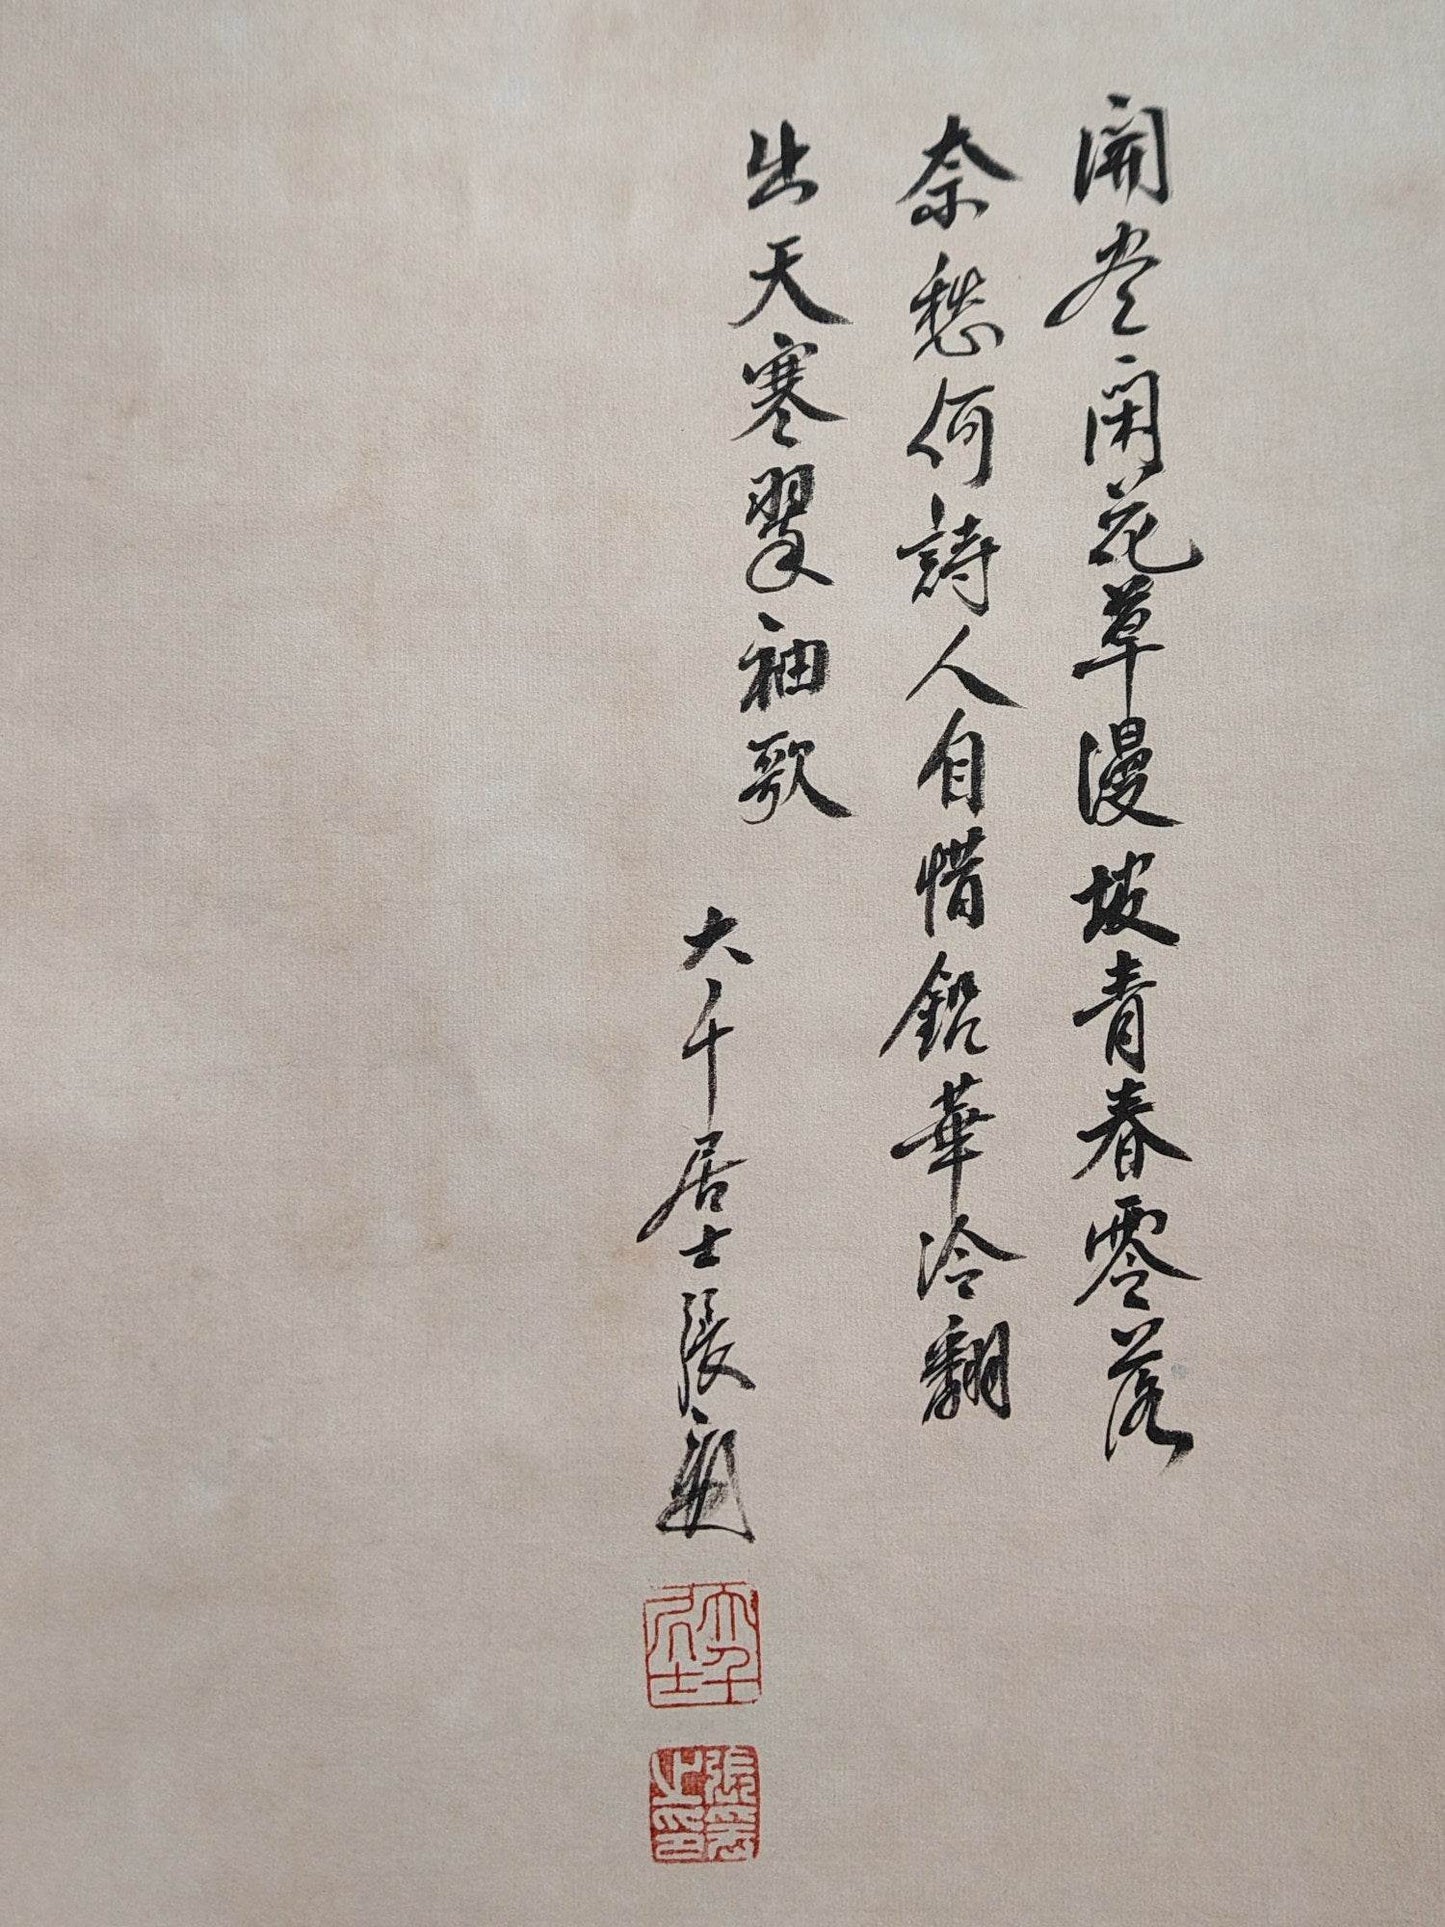 開盡閑花草漫坡青春零落
奈愁何詩人自惜鉛華冷翻
出天寒翠袖歌
大千居士張爰
大千居士
張爰之印